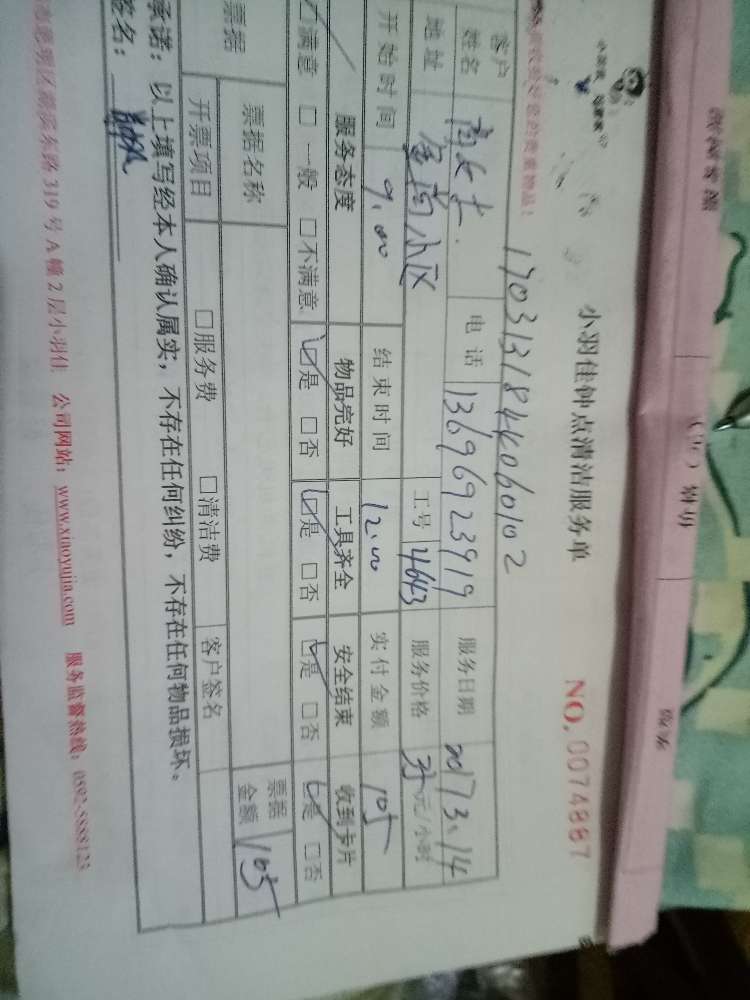 小羽佳钟点清洁服务单
NO. 0074887
1703131844060102
客户姓名 电话 13696923919 服务日期 2017.3.14
地址 金尚小区 工号 4643 服务价格 35元/小时
开始时间 9:00 结束时间 12:00 实付金额 105
服务态度 物品完好 工具齐全 安全结束 收到卡片
☑满意 □一般 □不满意 ☑是 □否 ☑是 □否 ☑是 □否 ☑是 □否
票据 票据名称 票据金额 105
开票项目 □服务费 □清洁费 客户签名
承诺：以上填写经本人确认属实，不存在任何纠纷，不存在任何物品损坏。
签名：
明区湖滨东路 319 号 A 幢 2 层小羽佳 公司网站：www.xiaoyujia.com 服务监督热线：0592-5888123